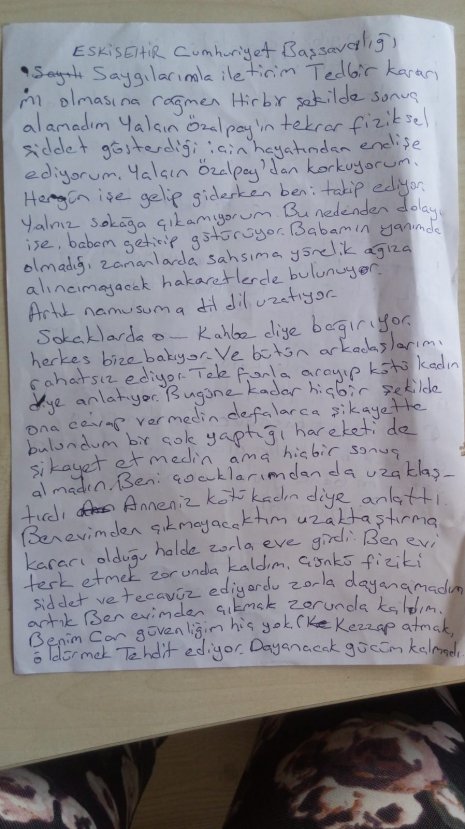 ESKİSEHİR Cumhuriyet Başsavcılığı
Saygılarımla iletirim Tedbir kararı
m olmasına rağmen Hiçbir şekilde sonuç
alamadım Yalçın Özalpay'ın tekrar fiziksel
şiddet gösterdiği için hayatından endişe
ediyorum. Yalçın Özalpay'dan korkuyorum.
Hergün işe gelip giderken beni takip ediyor.
Yalnız sokağa çıkamıyorum. Bu nedenden dolayı
işe, babam getirip götürüyor. Babamın yanımda
olmadığı zamanlarda şahsıma yönelik ağıza
alıncımayacak hakaretlerde bulunuyor.
Artık namusuma dil dil uzatıyor.
Sokaklarda o— Kahbe diye bağırıyor.
herkes bize bakıyor. Ve bütün arkadaşlarımı
rahatsız ediyor. Telefonla arayıp kötü kadın
diye anlatıyor. Bugüne kadar hiçbir şekilde
ona cevap vermedin defalarca şikayette
bulundum bir çok yaptığı hareketi de
şikayet etmedin ama hiçbir sonuç
almadın. Beni çocuklarımdan da uzaklaş-
tırdı Anneniz kötü kadın diye anlattı
Ben evimden çıkmayacaktım uzaktaştırma
kararı olduğu halde zorla eve girdi. Ben evi
terk etmek zorunda kaldım. Çünkü fiziki
şiddet ve tecavüz ediyordu zorla dayanamadım
artık Ben evimden çıkmak zorunda kaldım.
Benim Can güvenliğim hiç yok. Kezzap atmak,
öldürmek Tehdit ediyor. Dayanacak gücüm kalmadı